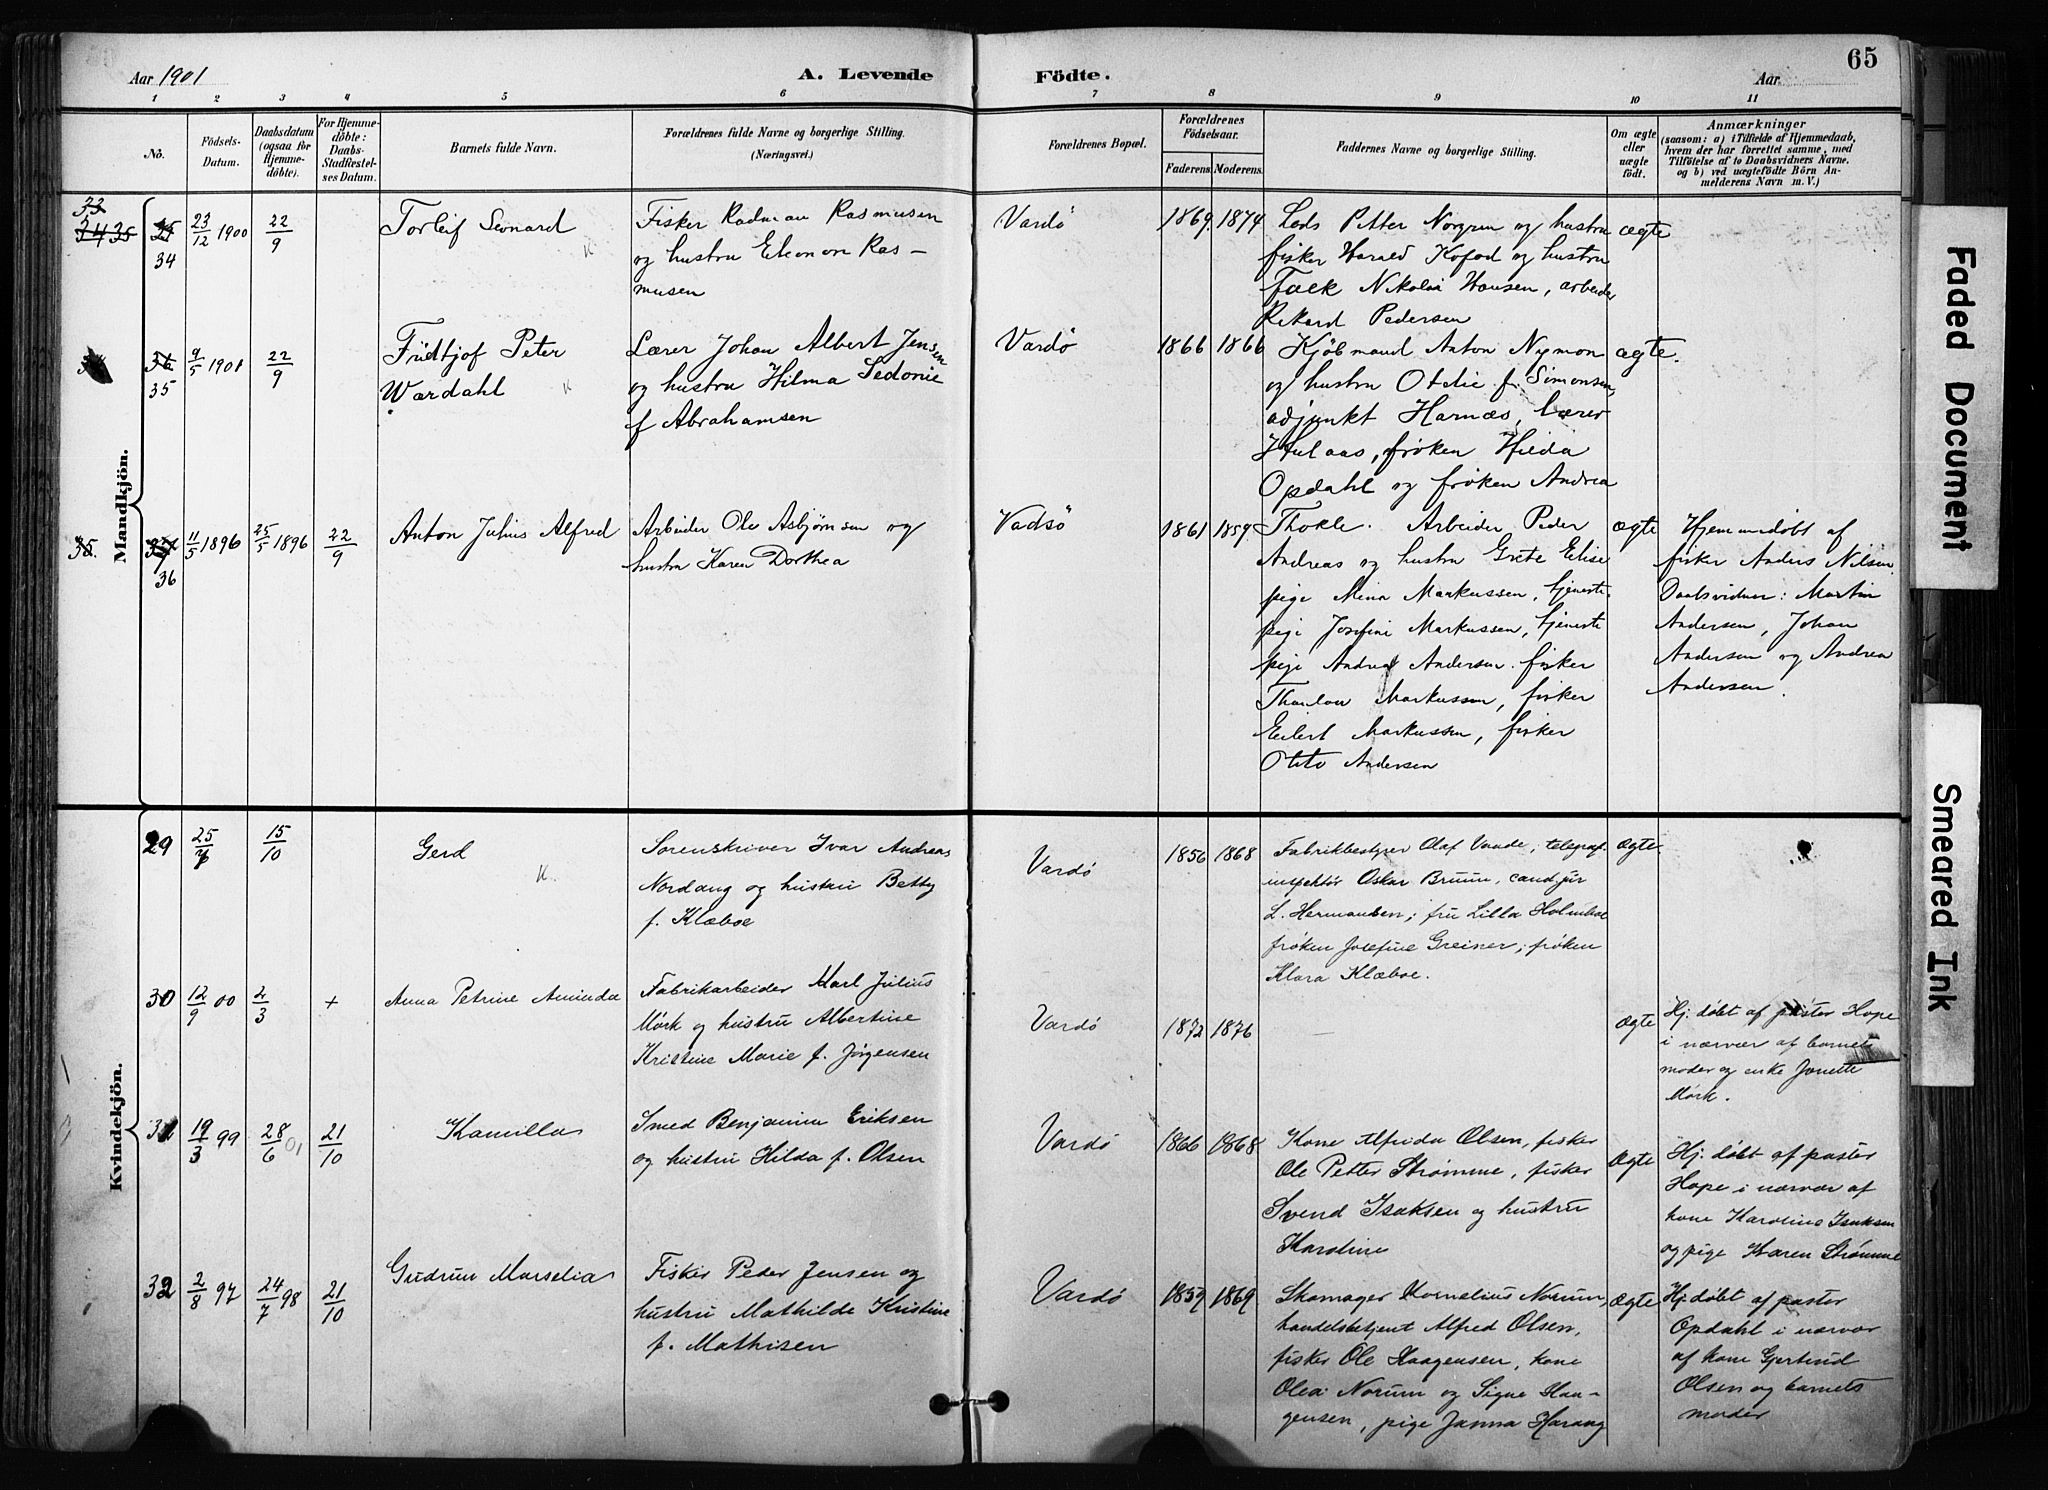 65
Aar 1901
A. Levende
Födte.
Aar
1 2 3 4 5 6 7 8 9 10 11
No.
Födsels-
Datum.
Daabsdatum
(ogsaa for
Hjemme-
döbte).
For Hjemme-
döbte:
Daabs-
Stadfæstel-
ses Datum.
Barnets fulde Navn.
Forældrenes fulde Navne og borgerlige Stilling.
(Næringsvei.)
Forældrenes Bopæl.
Forældrenes
Födselsaar.
Faderens. Moderens.
Faddernes Navne og borgerlige Stilling.
Om ægte
eller
uægte
födt.
Anmærkninger
(saasom: a) i Tilfælde af Hjemmedaab,
hvem der har forrettet samme, med
Tilföielse af to Daabsvidners Navne.
og b) ved uægtefödte Börn An-
melderens Navn m. V.)
Mandkjön.
33
34 35
34
23/12 1900
22/9
Torleif Leonard
K
Fisker Radman Rasmusen
og hustru Eleonore Ras-
musen
Vardø
1869. 1874
Lods Petter Norgren og hustru
fisker Harald Kofod og hustru
Falck Nikolai Hansen, arbeider
Rikard Pedersen
ægte
36
35
9/5 1901
22/9
Fridtjof Peter
Wardahl
K
Lærer Johan Albert Jensen
og hustru Hilma Sedonie
f Abrahamsen
Vardø
1866 1866
Kjøbmand Anton Nyman
og hustru Otelie f. Simonsen,
adjunkt Harnæs, lærer
Hulaas, frøken Hilda
Opdahl og frøken Andrea
Thokle.
ægte.
35.
36
11/5 1896
25/5 1896
22/9
Anton Julius Alfred
Arbeider Ole Asbjørnsen og
hustru Karen Dorthea
Vadsø
1861 1859
Arbeider Peder
Andreas og hustru Grete Elise
pige Mina Markussen, tjeneste
pige Josefine Markussen, tjeneste
pige Andrea Andersen. fisker
Markussen, fisker
Eilert Markussen, fisker
Otto Andersen
ægte
Hjemmedøbt af
fisker Anders Nilsen.
Daabsvidner: Martin
Andersen, Johan
Andersen og Andrea
Andersen.
Kvindekjön.
29
25/7
15/10
Gerd
K.
Sorenskriver Ivar Andreas
Nordang og hustru Betty
f. Klæboe
Vardø
1856 1868
Fabrikbestyrer Olaf Vande, telegraf-
inspektør Oskar Bruun, cand. jur
L. Hermansen; fru Lilla Holmboe
frøken Josefine Greiner; frøken
Klara Klæboe.
Ægte.
30
12/9 00
2/3
+
Anna Petrine Aminda
Fabrikarbeider Karl Julius
Mørk og hustru Albertine
Kristine Marie f. Jørgensen
Vardø
1872 1876
—
Ægte
Hj. døbt af pastor Hope
i nærvær af barnets
moder og enke Jonette
Mørk.
31
19/3 99
28/6 01
21/10
Kamilla
Smed Benjamin Eriksen
og hustru Hilda f. Olsen
Vardø
1866 1868
Kone Alfrida Olsen, fisker
Ole Petter Strømme, fisker
Svend Isaksen og hustru
Karoline
Ægte
Hj. døbt af pastor
Hope i nærvær af
kone Karoline Isaksen
og pige Karen Strømme
32
2/8 97
24/7 98
21/10
Gudrun Marselia
Fisker Peder Jensen og
hustru Mathilde Kristine
f. Mathisen
Vardø
1859 1869
Skomager Kornelius Norum,
handelsbetjent Alfred Olsen,
fisker Ole Haagensen, kone
Olea Norum og Signe Haa-
gensen, pige Janna Harang
Ægte
Hj. døbt af pastor
Opdahl i nærvær
af kone Gjertrud
Olsen og barnets
moder
Faded Document
Smeared Ink